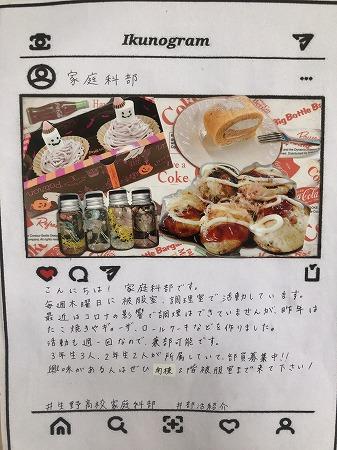 Ikunogram
家庭科部
こんにちは! 家庭科部です。
毎週木曜日に被服室、調理室で活動しています。
最近はコロナの影響で調理はできていませんが、昨年は
たこ焼きやギョーザ、ロールケーキなどを作りました。
活動も週一回なので、兼部可能です。
3年生3人、2年生2人が所属していて、部員募集中!!
興味がある人はぜひ 2階被服室まで来て下さい!
#生野高校家庭科部 #部活紹介
Coke
Big Bottle Bar
Coke
Coca-Cola